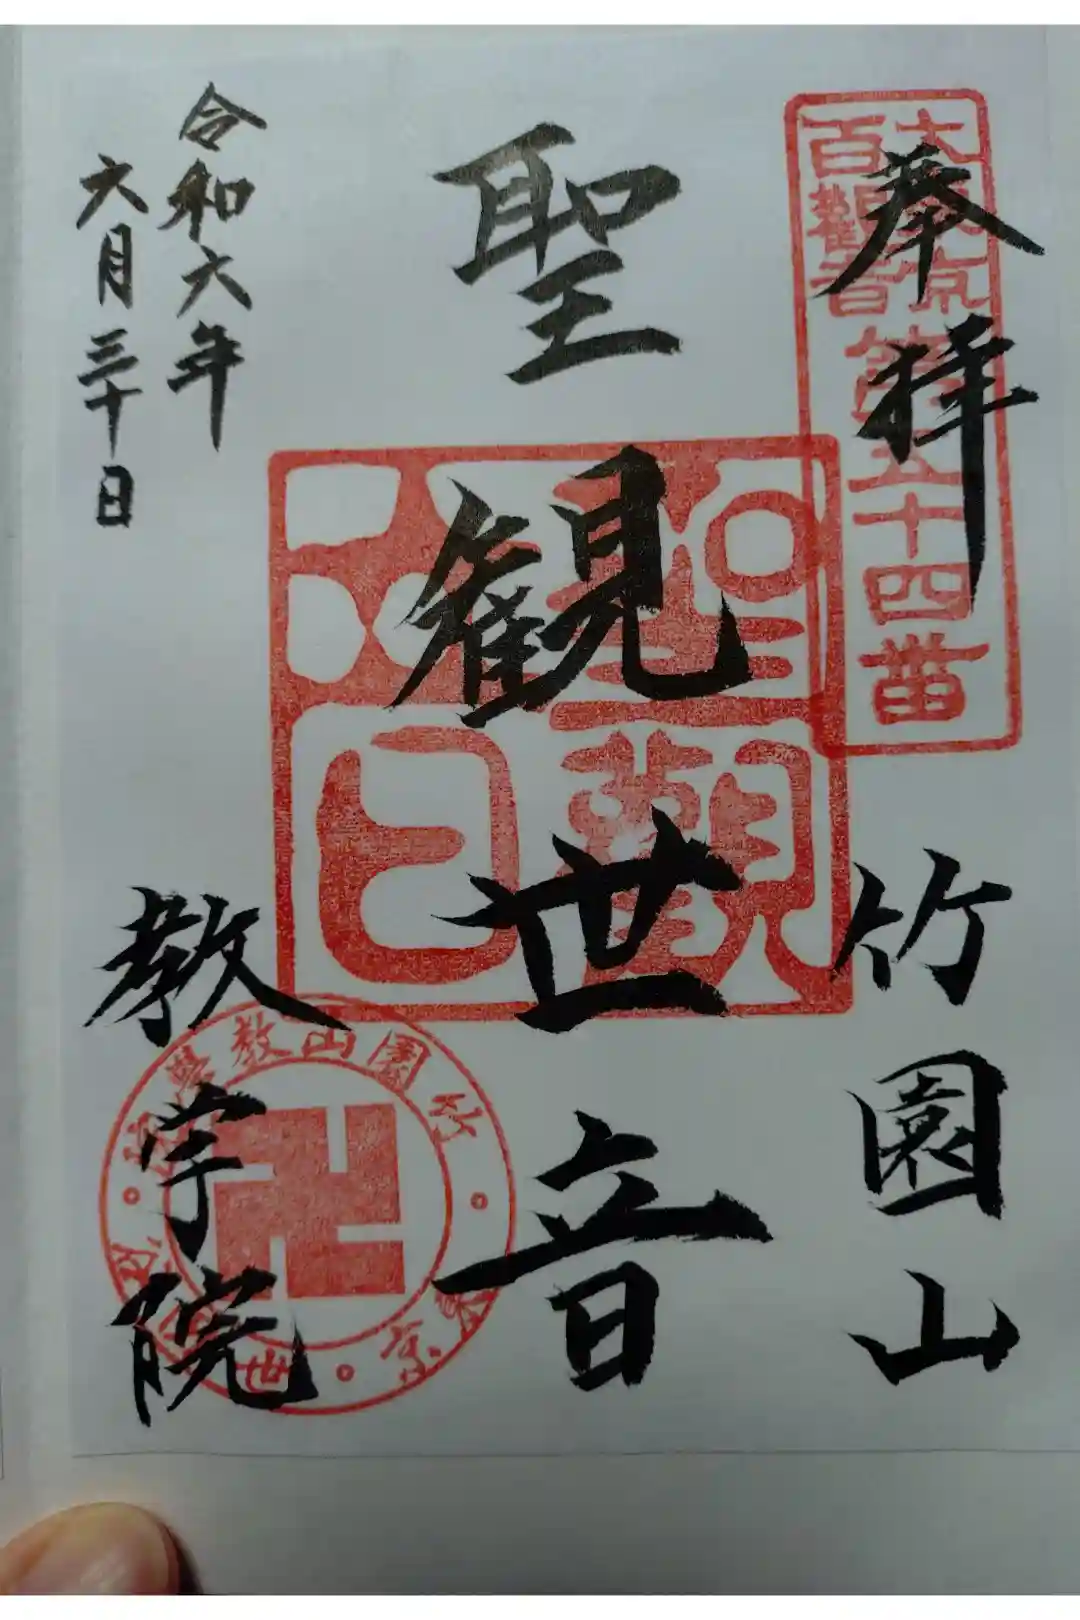 奉拝
大東京
百観音
第五十四番
竹園山
聖観世音
令和六年
六月三十日
教学院
竹園山教學院
東京
世